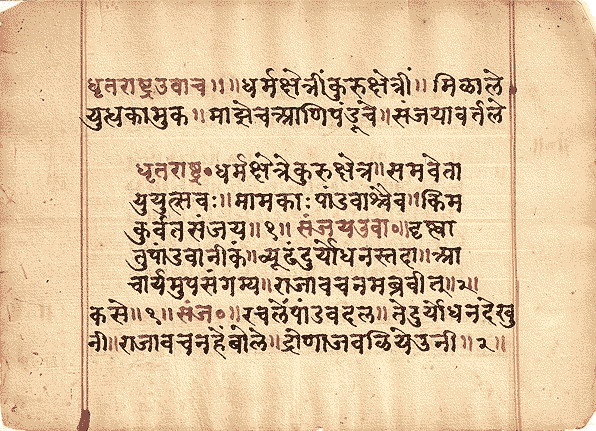 धृतराष्ट्रउवाच॥१॥धर्मक्षेत्रींकुरुक्षेत्रीं॥मिळाले
युत्धकामुक॥माझेचआणिपंडूचे॥संजयावर्तले
धृतराष्ट्र॰धर्मक्षेत्रेकुरुक्षेत्रे॥समवेता
युयुत्सवः॥मामकाःपांडवाश्चैव॥किम
कुर्वतसंजय॥१॥संजयउवा॰॥दृष्ट्वा
तुपांडवानीकं॥व्यूढंदुर्योधनस्तदा॥आ
चार्यमुपसंगम्य॥राजावचनमब्रवीत्॥२॥
कसे॥१॥संज॰॥रचलेंपांडवदल॥तेदुर्योधनदेखु
नी॥राजावचनहेंबोले॥द्रोणाजवळियेउनी॥२॥